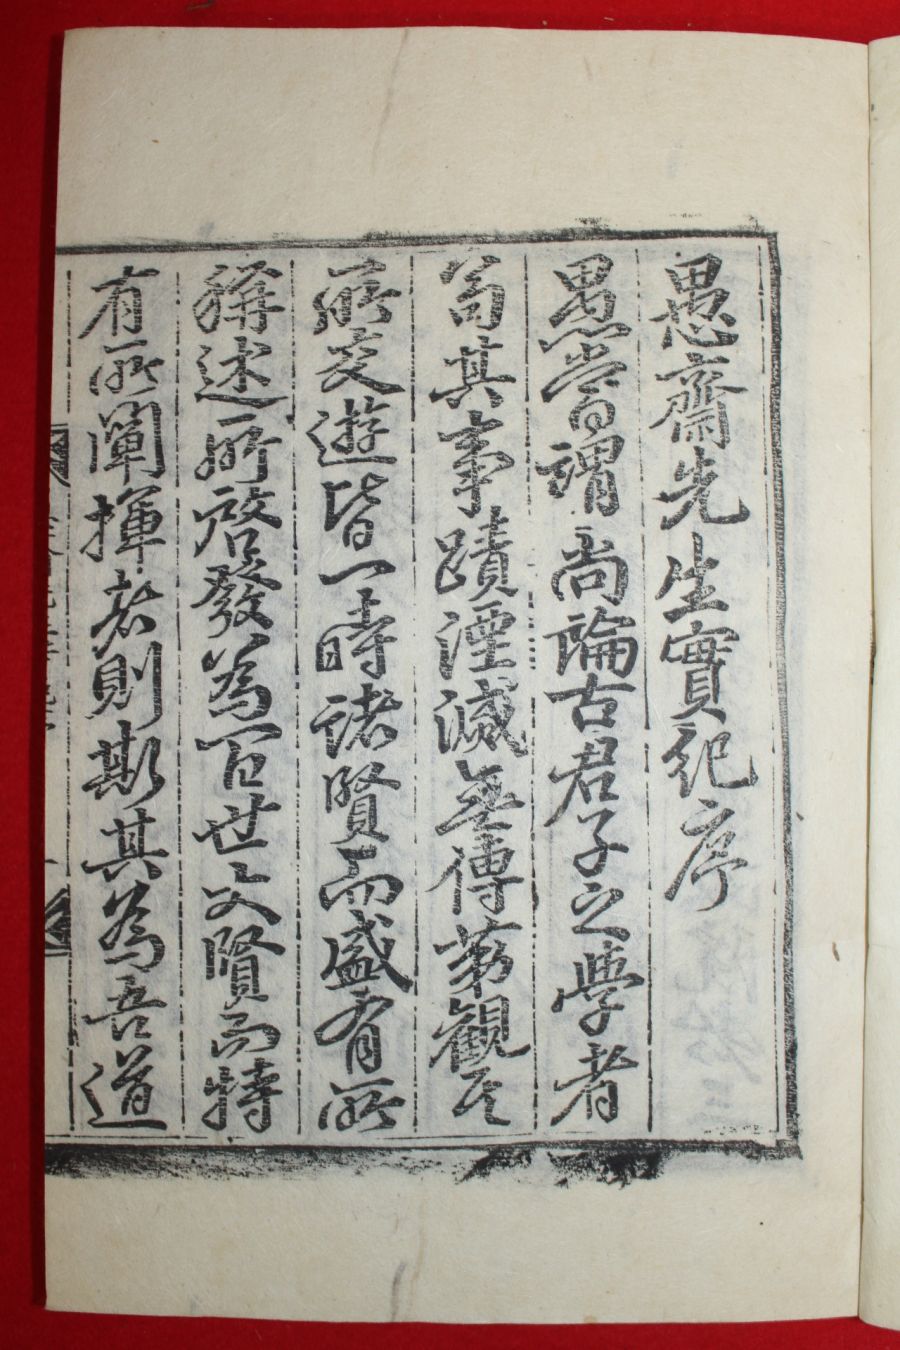 愚齋先生實紀序
愚嘗謂尚論古君子之學者
苟其事蹟湮滅無傳苐觀其
所交遊皆一時諸賢而盛有所
稱述所啓發為百世文賢而特
有所闡揮者則斯其為吾道